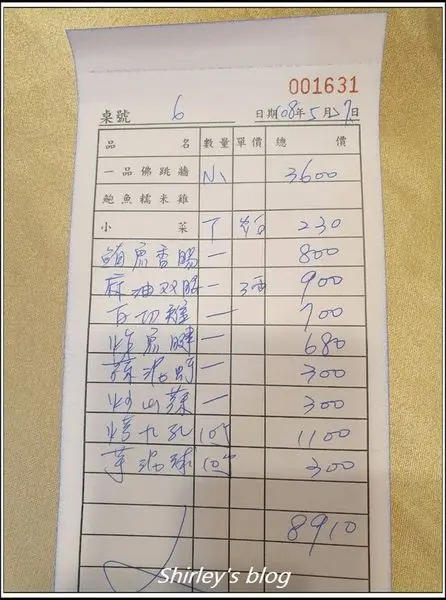 001631
桌號 6 日期 108年5月27日
品名 數量 單價 總價
一品佛跳牆 小 3600
鮑魚糯米雞
小菜 230
鮪魚香腸 一 800
麻油双腰 一 900
白切雞 一 700
炸魚腱 一 680
蒜泥蚵 一 300
炒山蘇 一 300
烤九孔 10 1100
芋泥球 10 300
8910
Shirley's blog